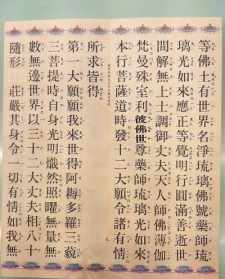 等佛土有世界名淨琉璃佛號藥師琉
璃光如來應正等覺明行圓滿善逝世
間解無上士調御丈夫天人師佛薄伽
梵曼殊室利彼佛世尊藥師琉璃光如來
本行菩薩道時發十二大願令諸有情
所求皆得
第一大願願我來世得阿耨多羅三藐
三菩提時自身光明熾然照曜無量無
數無邊世界以三十二大丈夫相八十
隨形 莊嚴其身令一切有情如我無